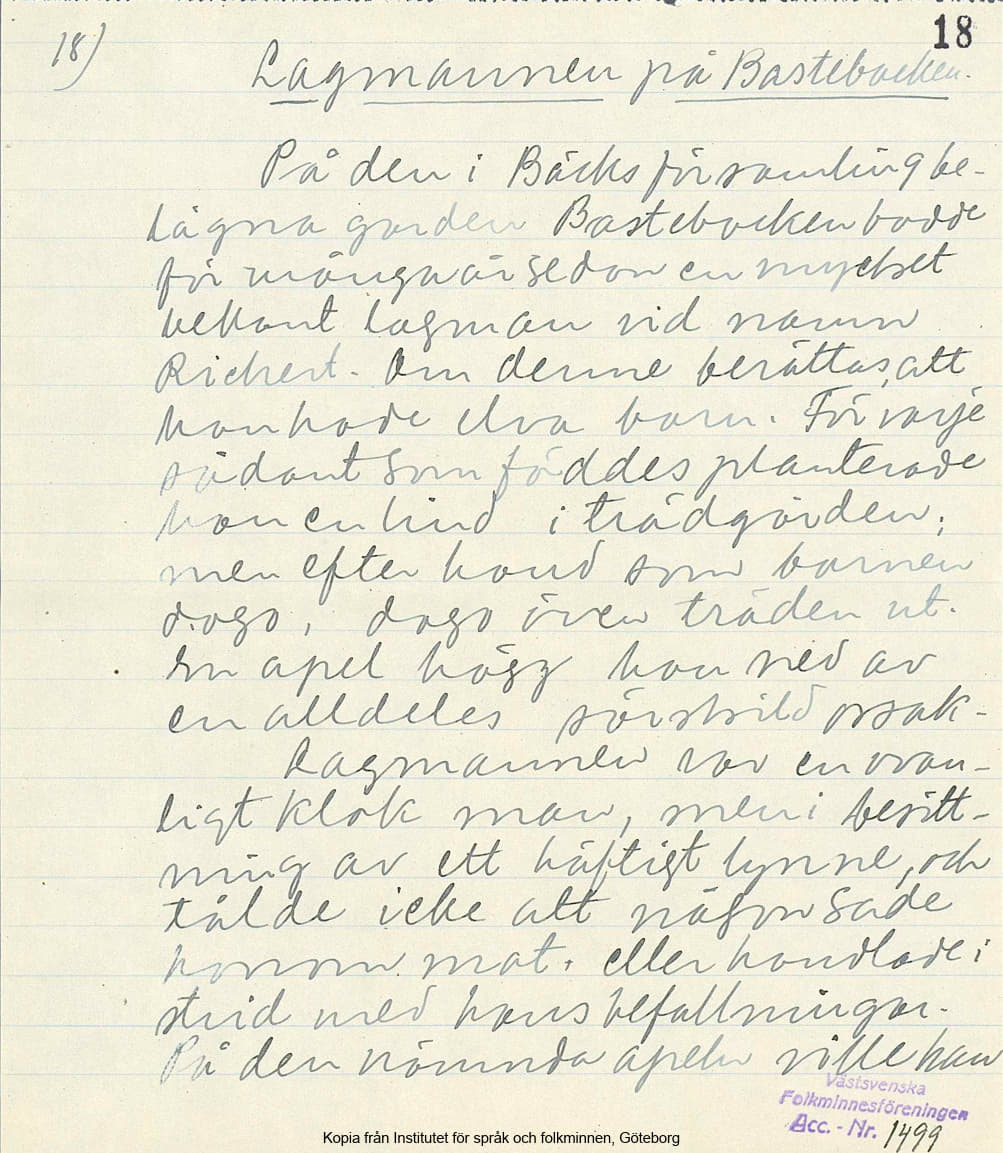 18
18)
Lagmannen på Bastebacken.
På den i Bäcks församling be-
lägna gården Bastebacken bodde
för många år sedan en mycket
bekant lagman vid namn
Richert. Om denne berättas, att
han hade elva barn. För varje
sådant som föddes planterade
han en lind i trädgården,
men efter hand som barnen
dogo, dogo även träden ut.
En apel högg han ned av
en alldeles särskild orsak-
Lagmannen var en ovan-
ligt klok man, men i besitt-
ning av ett häftigt lynne, och
tålde icke att någon sade
honom mot. eller handlade i
strid med hans befallningar.
På den nämnda apeln ville han
Västsvenska
Folkminnesföreningen
Acc. - Nr. 1499
Kopia från Institutet för språk och folkminnen, Göteborg